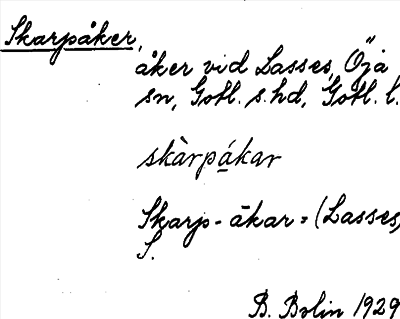 Skarpåker,
åker vid Lasses, Öja
sn, Gotl. s. hd, Gotl. l.
skàrpákar
Skarp-åkar = (Lasses,
S.
B. Bolin 1929